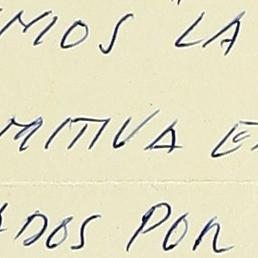 EMOS LA
MITIVA E
ADOS POR